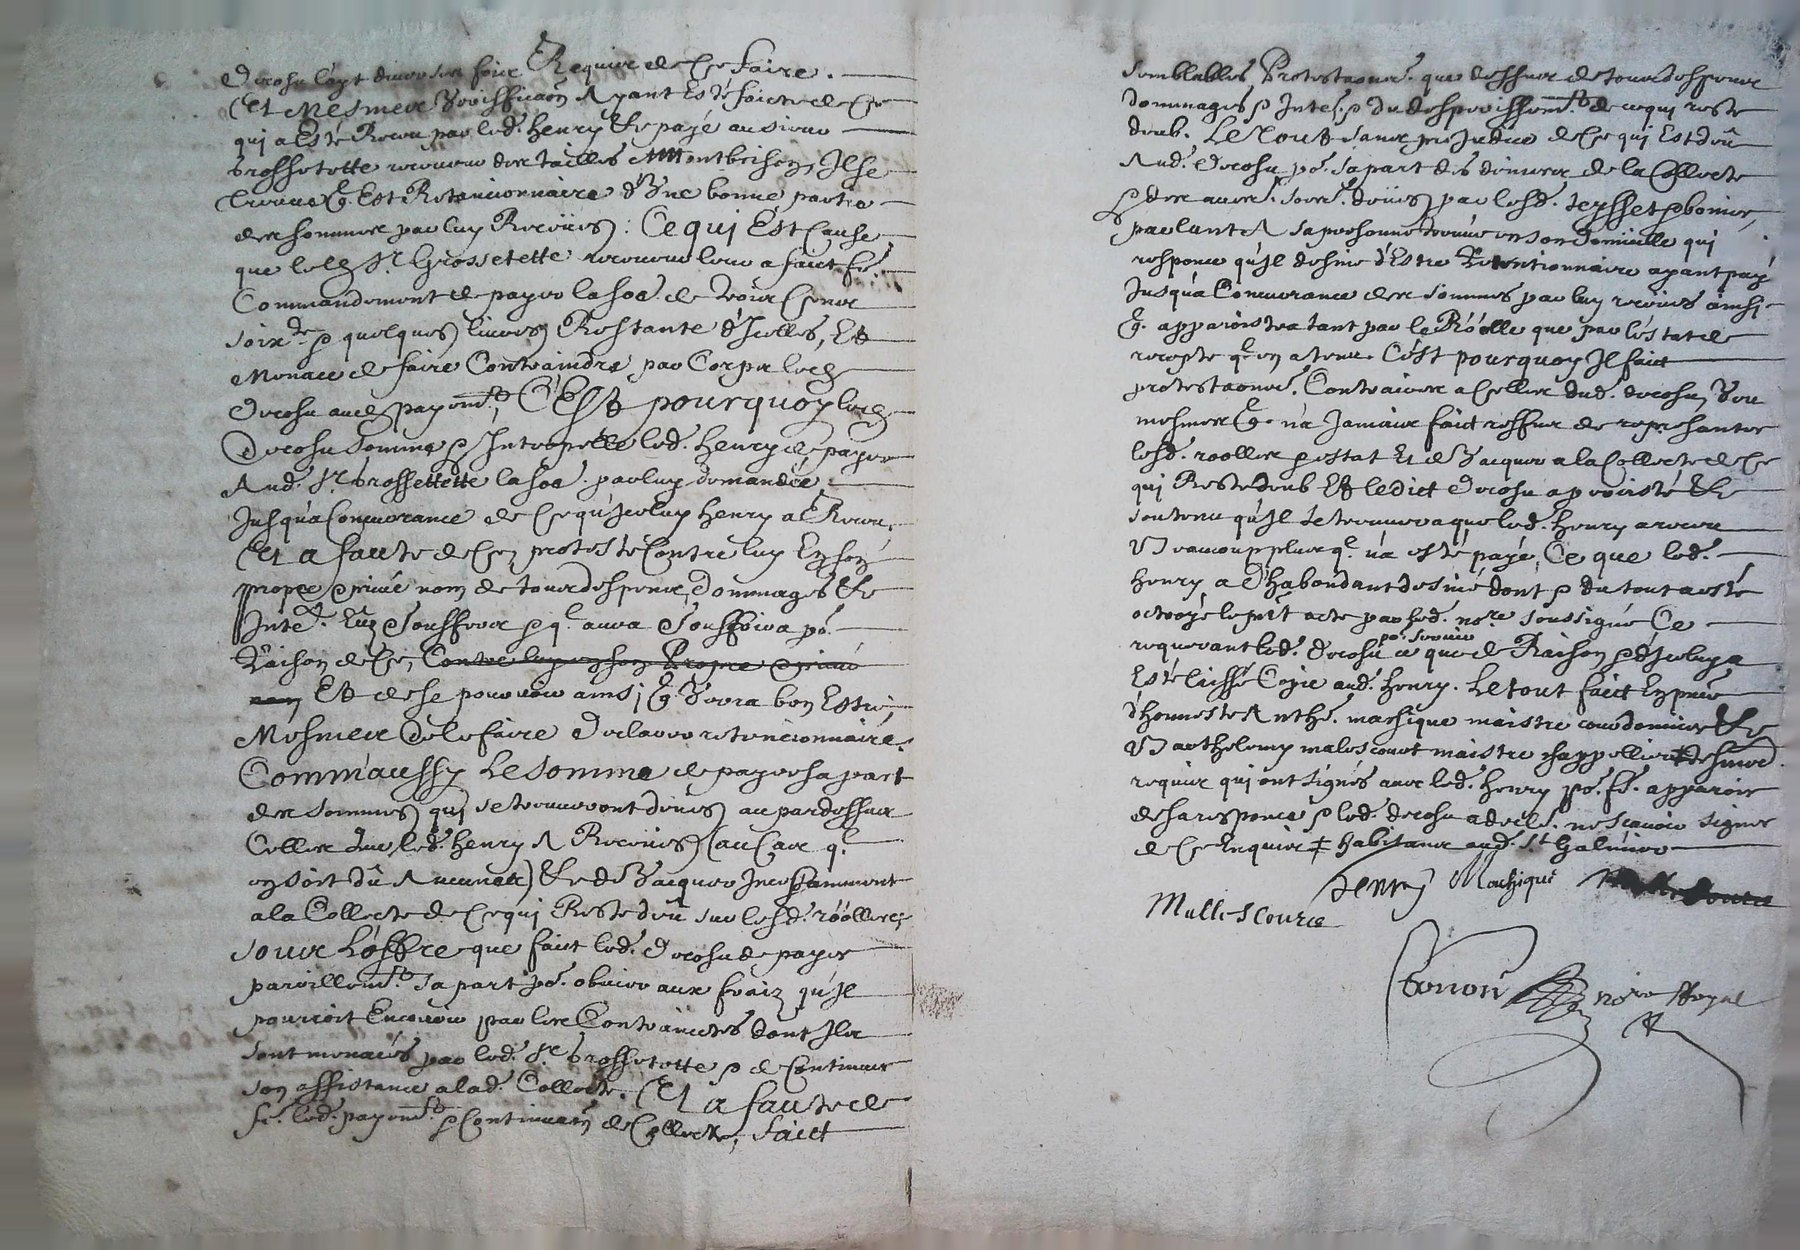 Decosu l'ayt diverses foix Requier de ce faire.
Et Mesmes Veriffica͠on Ayant Esté faicte de Ce
qui a Esté Receu par led. henry & payé au sieur
Grossetette receveur des tailles Montbrison, Il se
treuve q. Est Retantionnaire d'Une bonne partie
des sommes par luy Recëues : Ce qui Est Cause
que led Sr. Grossetette receveur leur a faict fe.
Commandement de payer la so͠e. de trois Cens
soix.te & quelques livres Restante d'Icelles, Et
Menace de faire Contraindre par Corps led
Decosu aud payem.t, C'Est pourquoy led
Decosu somme & Interpelle led. henry de payer
Aud. Sr. Grossettette la so͠e. par luy demandée
Jusqu'a Concurance de Ce qu'Iceluy henry a Receu,
Et a faute de Ce, proteste Contre luy En son
propre & privé nom de tous despens, Dommages &
Inte.t En Souffers & q.l aura Souffrira po.
Raison de Ce, Contre luy en son Propre & privé
nom Et de se pourvoir ainsi q. Verra bon Estre,
Mesmes de le faire Declarer retencionnaire.
Comm'aussy Le somme de payer sa part
des sommes qui se treuveront deües au pardessus
Celles que led. henry A Recëues (au Cas q.l
en soit dû Aucunes) & de Vacquer Incessamment
a la Collecte de Ce qui Reste deu sur lesd. roolles;
sous L'offre que faict led. Decosu de payer
pareillem.t sa part po. obvier aux fraiz qu'Il
pourroit Encourir par les Contrainctes dont Ils
sont menacés par led. Sr. Grossetette & de Continuer
son assistance a lad. Collecte. Et a faute de
fe. led. payem.t & Continua͠on de Collecte, faict
semblables Protesta͠ons. que dessus de tous despens
dommages & Inte.s & du despérissem.t de ce qui reste
deub. Le Tout sans préjudice de Ce qui Est dû
Aud. Decosu po. sa part des deniers de la Collecte
& des autres. so͠es. deües par lesd. Teysset & bonier,
parlant A sa personne treuvé en son Domicille qui
responce qu'Il desnie d'Estre Retentionnaire ayant payé
Jusqu'a Concurance des sommes par luy recëues ainsi
q. apparoistra tant par le Róolle que par l'estat de
recepte q.l en a tenu. C'est pourquoy Il faict
protesta͠ons. Contraires a Celles dud. decosu, Veu
mesmes q. n'a Jamais faict reffus de représanter
lesd. roolles & estat Et de Vacquer a la Collecte de Ce
qui Reste deub Et ledict Decosu a persisté &
soutenu qu'Il se treuvera que led. henry a receu
Beaucoup plus q. n'a esté payé, Ce que led.
henry a D'habondant desnié dont & du tout a esté
octroyé le p͠nt acte par led. no.re soussigné Ce
requerant led. Decosu po. servir ce que de Raison & d'Iceluy a
Esté laissé Copie aud. henry. Le tout faict En pnce
d'honneste Anthe. machique maistre cordonnier &
Barthelemy malescourt maistre chappellier tesmoins
requis qui ont signés avec led. henry po. fe. apparoir
de sa responce & led. decosu a declé. ne scavoir signer
de Ce Enquis ‡ habitans aud. St Galmier
henry Machique
Mallescourt
no.re Royal